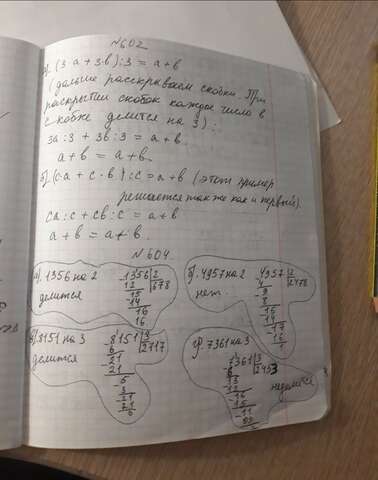 №602
а) (3·а + 3·в):3 = а+в
(дальше раскрываем скобки. При
раскрытии скобок каждое число в
скобке делится на 3):
3а:3 + 3в:3 = а+в.
а+в = а+в.
б) (с·а + с·в):с = а+в (этот пример
решается так же как и первый).
са:с + св:с = а+в
а+в = а+в.
№604.
а) 1356 на 2
делится
1356|2
12 678
15
14
16
16
б) 4957 на 2
нет.
4957|2
4 2478
9
8
15
14
17
16
1
в) 8151 на 3
делится
8151|3
6 2717
21
21
5
3
21
21
0
г) 7361 на 3
неделится
7361|3
6 2453
13
12
16
15
11